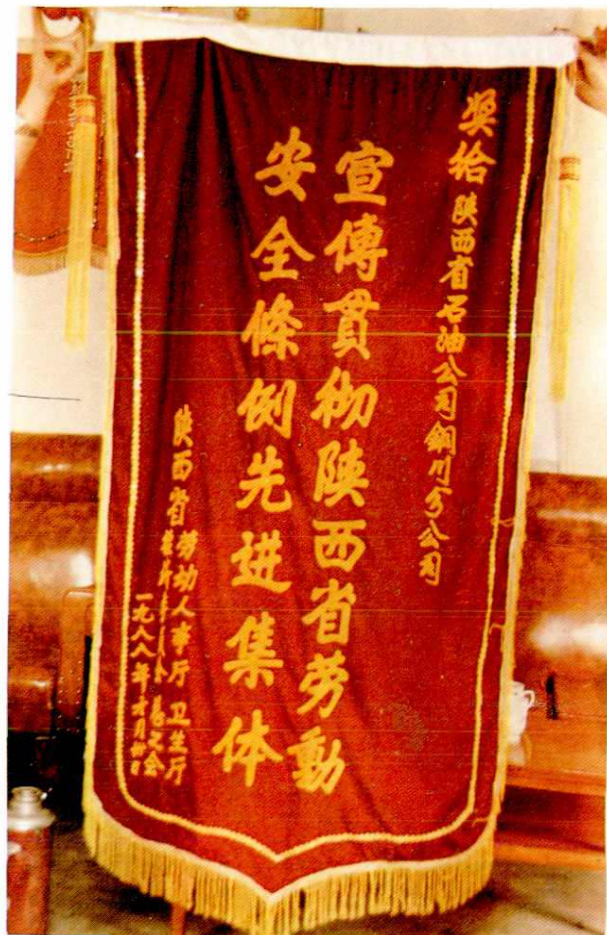 奖给陕西省石油公司銅川分公司
宣傳贯彻陕西省劳動
安全條例先进集体
陕西省劳动人事厅卫生厅
总工会
一九八八年